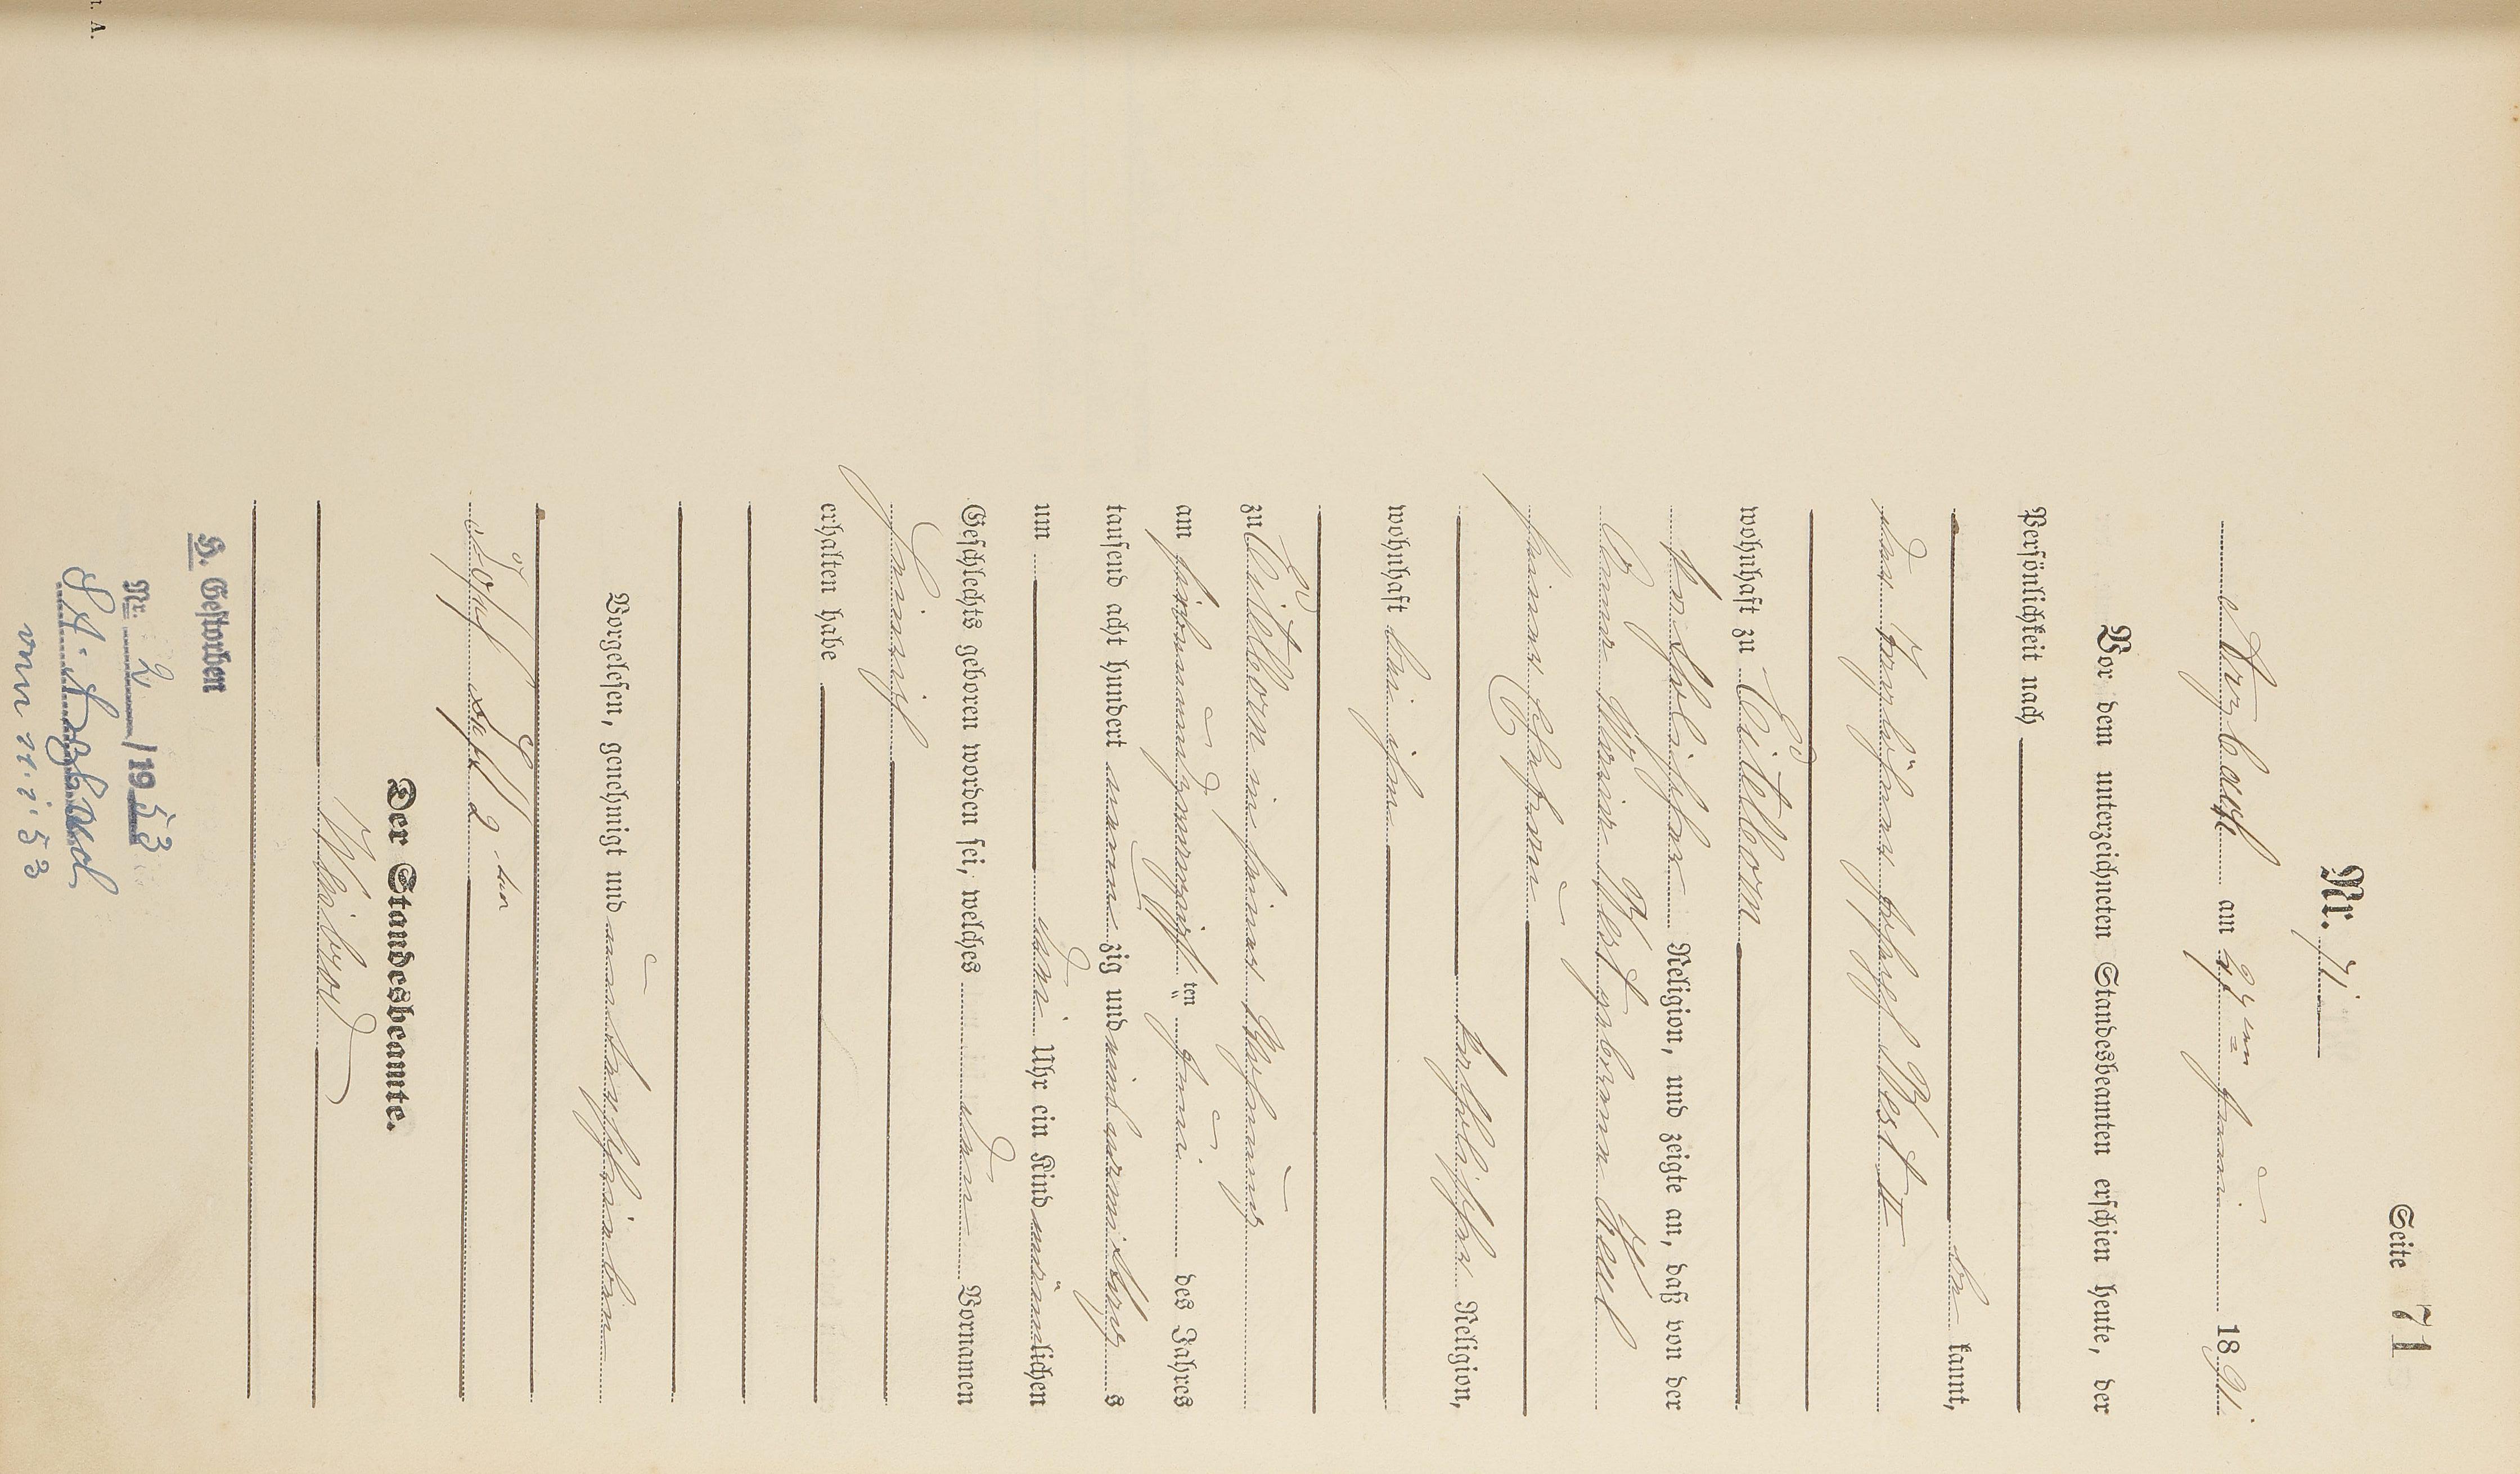 Seite 71
Nr. 71.
Arzbach am 27ten Juni 1891.
Vor dem unterzeichneten Standesbeamten erschien heute, der
Persönlichkeit nach
be kannt,
der Taglöhner Joseph West II
wohnhaft zu Eitelborn
katholischer Religion, und zeigte an, daß von der
Anna Maria West geborene
seiner Ehefrau
katholischer Religion,
wohnhaft bei ihm
zu Eitelborn in seiner Wohnung
am siebenundzwanzigsten Juni des Jahres
tausend acht hundert neunzig und eins
um drei Uhr ein Kind männlichen
Geschlechts geboren worden sei, welches den Vornamen
Heinrich
erhalten habe
Vorgelesen, genehmigt und unterschrieben
Josef West 2 ter
Der Standesbeamte.
Weibrod
H. Gestorben
Nr. 2/1953
St. A. Arzbach
vom 21.1.53
n. A.